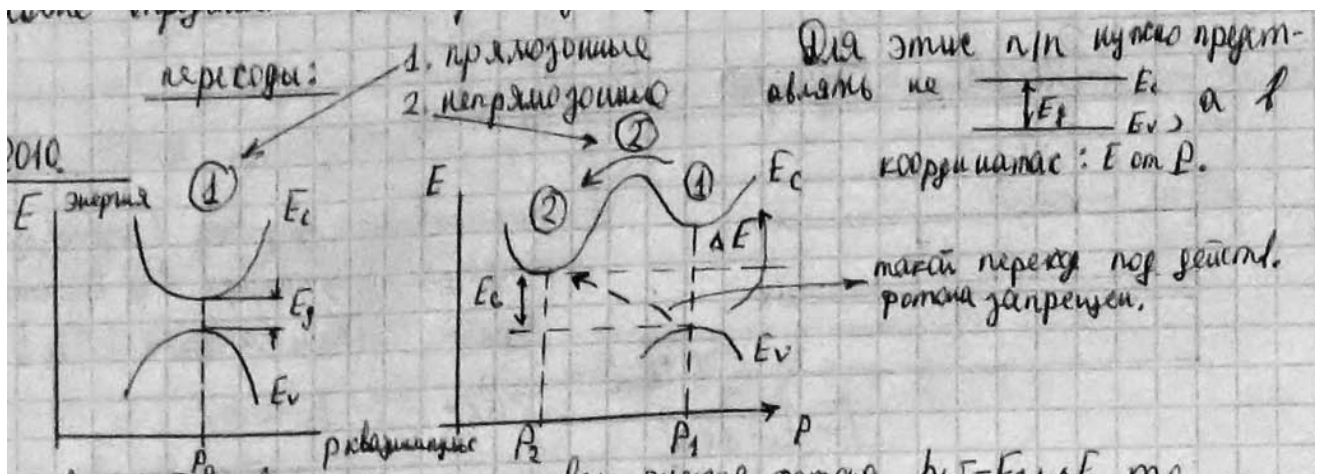 переходы:
1. прямозонные
2. непрямозонные
Для этих п/п нужно предст-
авлять не Eg Ec
Ev, а в
координатах: E от P.
2010.
E энергия ① Ec
Eg
Ev
P квазиимпульс
P₀
E ② ② ① Ec
ΔE
Eg
Ev
P₂ P₁ P
такой переход под действ.
фотона запрещен.